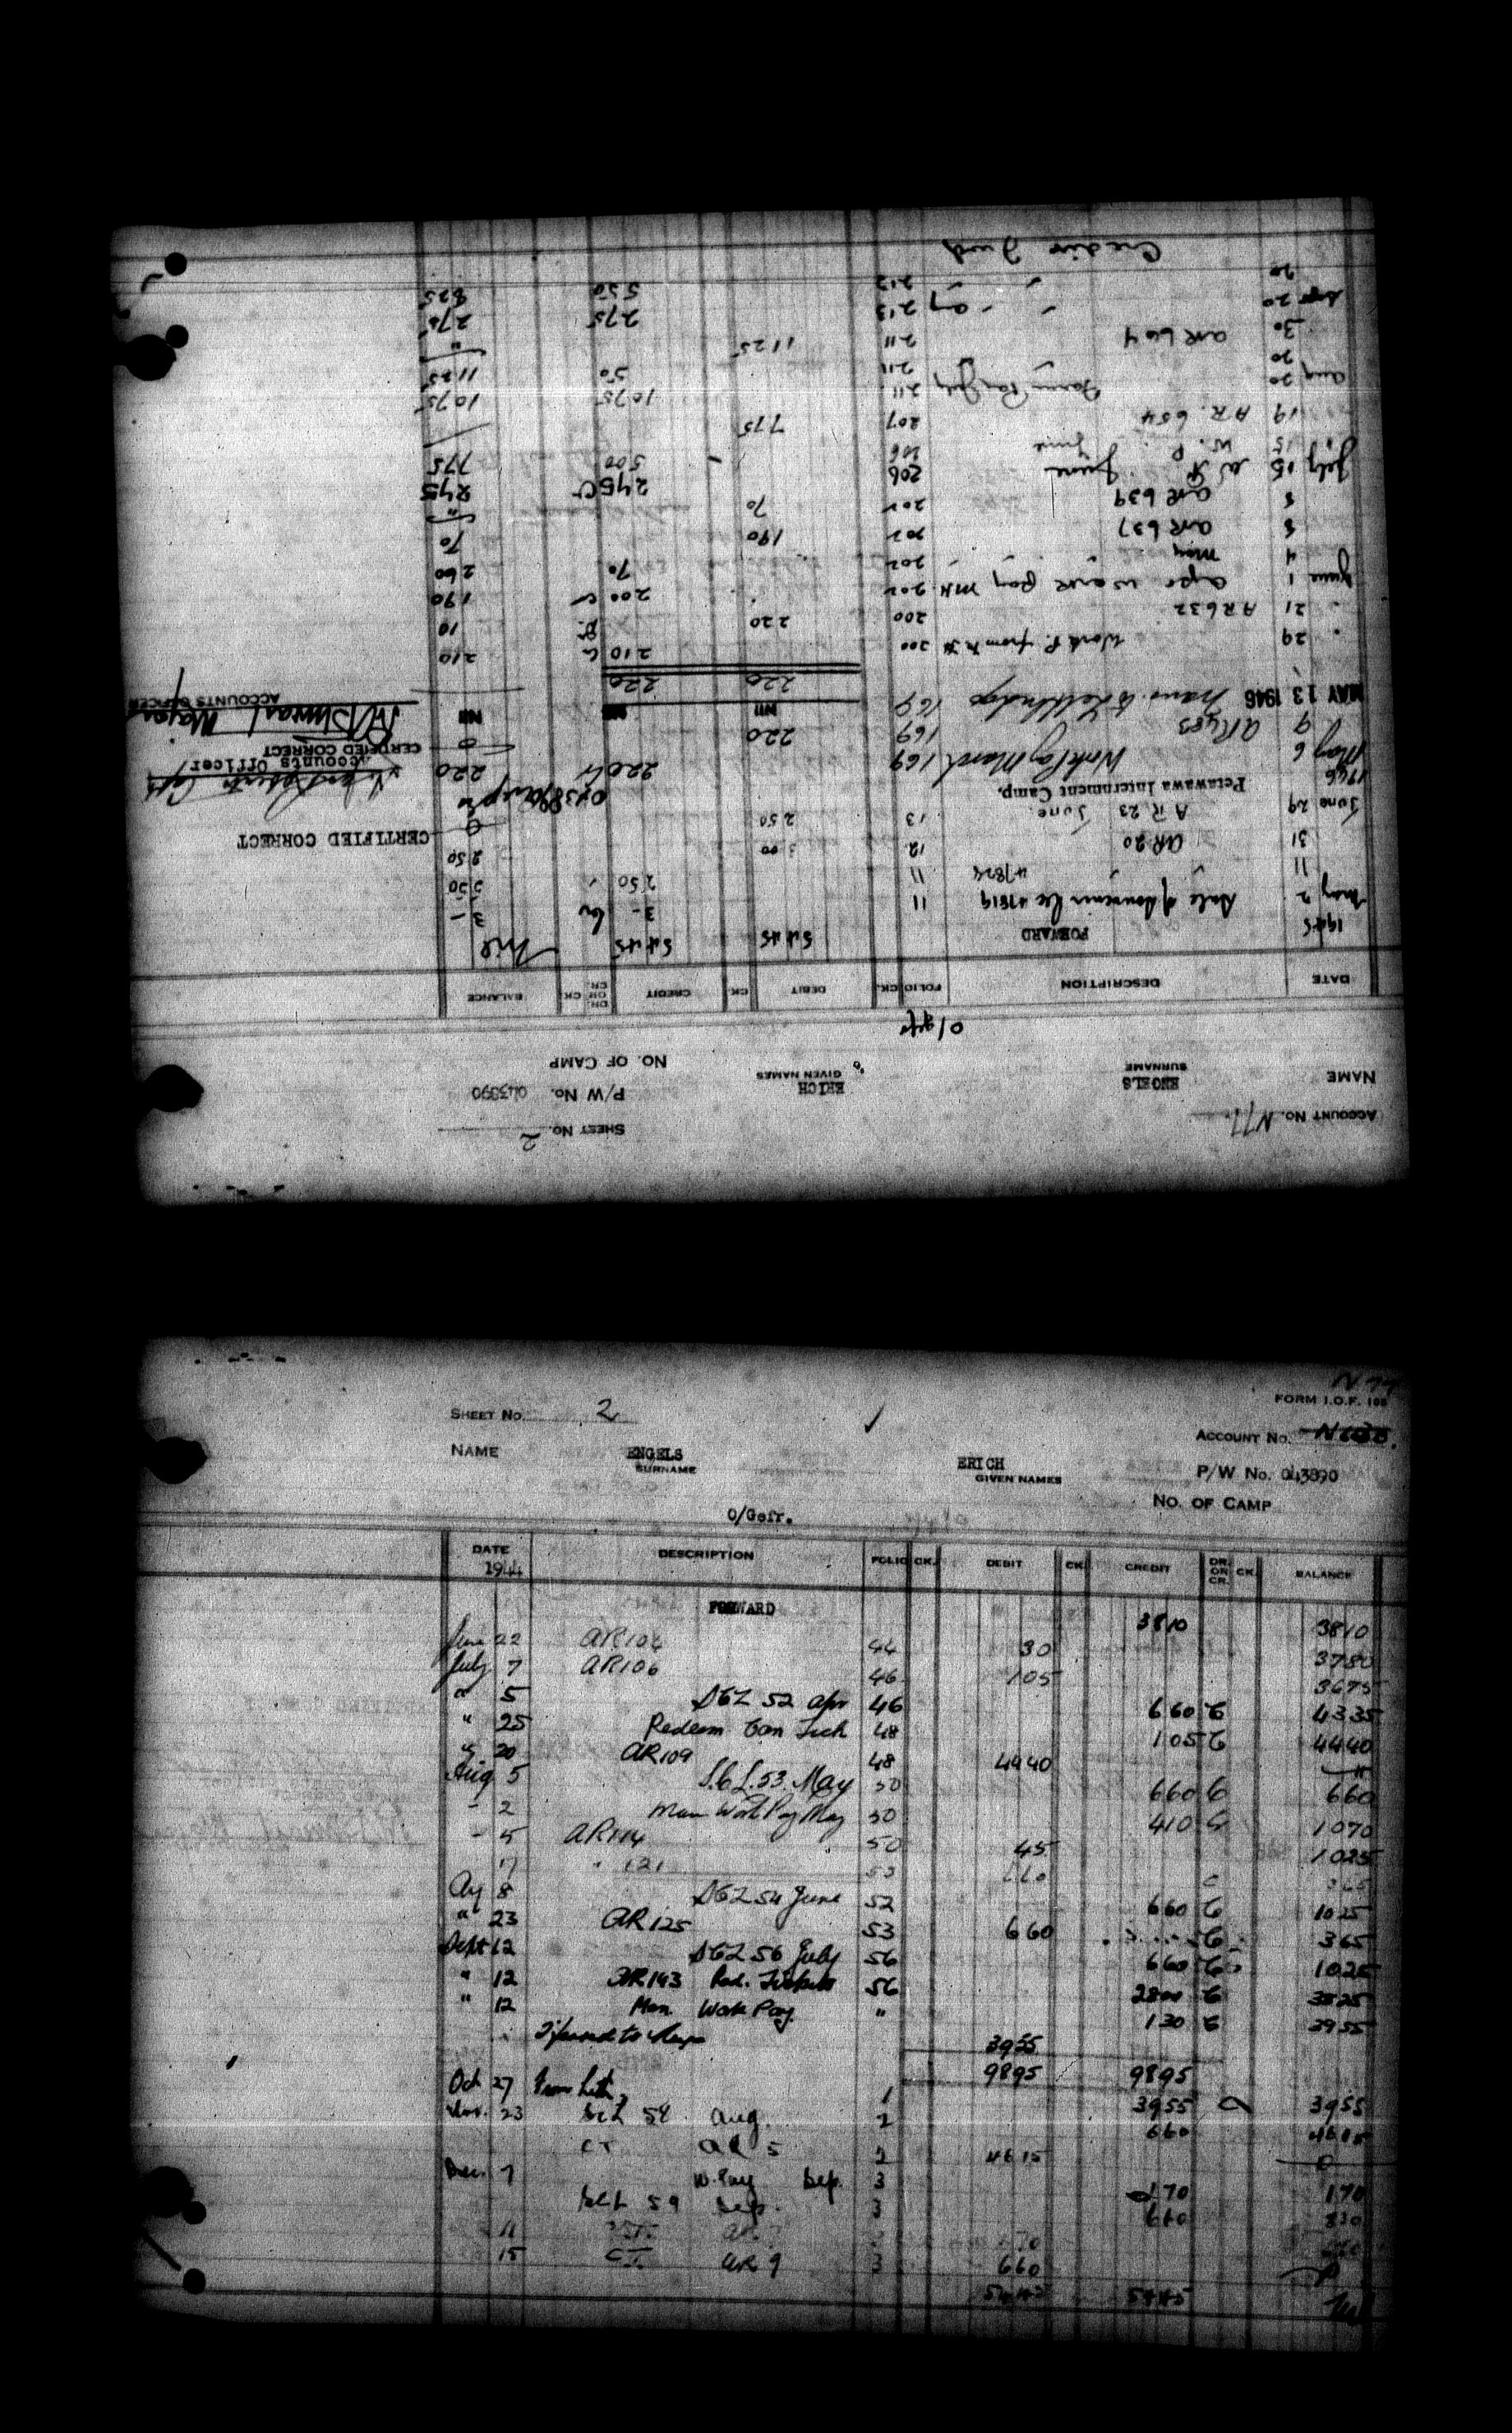 Credit Fund
20 213 550 825
Sept 20 " Aug " 213 275 275
30 AR 664 211 1125 "
20 " 211 50 1125
Aug 20 Farm Pay July 211 1075 1075
19 AR. 654 207 775
15 W. P. June 206 500 775
July 15 W P June 206 245 Cr 245
8 AR 639 202 70 "
8 AR 637 202 190 70
4 May " " 202 70 260
June 1 Apr Work Pay MH 202 200 Cr 190
" 21 AR 632 200 220 Dr 10
" 29 Work P. from M.H 200 210 Cr 210
220 220
ACCOUNTS OFFICER
MAY 13 1946 Trans. to Lethbridge 169 Nil Nil Nil
Major
9 AR 483 169 220 0
CERTIFIED CORRECT
May 6 Work Pay March 169 220 Cr 220
Accounts Officer
1946 Petawawa Internment Camp.
June 29 AR 23 June 13 250 0
CERTIFIED CORRECT
31 AR 20 12 300 250
11 " " 47824 11 250 " 550
May 2 Sale of Souvenir Rec 47819 11 3- Cr 3-
1945 FORWARD 5445 5445 Nil
DATE DESCRIPTION FOLIO CK. DEBIT CK. CREDIT DR. OR CR. CK. BALANCE
O/Gefr
NAME ENGELS ERICH NO. OF CAMP
SURNAME GIVEN NAMES
P/W No. 043890
ACCOUNT NO. N77 SHEET NO. 2
N 77
FORM I.O.F. 108
SHEET NO. 2 ACCOUNT NO.
NAME ENGELS ERICH P/W No. 043890
SURNAME GIVEN NAMES
NO. OF CAMP
O/Gefr.
DATE DESCRIPTION FOLIO CK. DEBIT CK. CREDIT DR. OR CR. CK. BALANCE
1944
FORWARD 3810 3810
June 22 AR104 44 30 3780
July 7 AR106 46 105 3675
" 5 DGL 52 Apr 46 660 C 4335
" 25 Redeem Can Tick 48 105 C 4440
" 20 AR109 48 4440 "
Aug 5 DGL 53. May 50 660 C 660
- 2 Man Work Pay May 50 410 C 1070
- 5 AR114 50 45 1025
17 " 121 53 660 C 365
Aug 8 DGL 54 June 52 660 C 1025
" 23 AR125 53 660 C 365
Sept 12 DGL 56 July 56 660 C 1025
" 12 AR143 Red. Tickets 56 2800 C 3825
" 12 Man. Work Pay. " 130 C 3955
3955
9895 9895
Oct 27 From Leth. 1 3955 Cr 3955
Nov. 23 DGL 58 Aug. 2 660 4615
CT AR 5 2 4615 0
Dec. 7 W. Pay Sep. 3 170 170
DGL 59 Sep. 3 660 830
11 C.T. AR.
15 C.T. AR 9 3 660 0
5445 5445 Nil